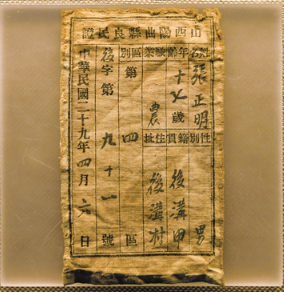 山西陽曲縣良民證
姓名 張正明 性別 男
年齡 十七歲 籍貫 後溝
職業 農 住址 後溝村
區別 第四區
後字第九十一號
中華民國二十九年四月六日